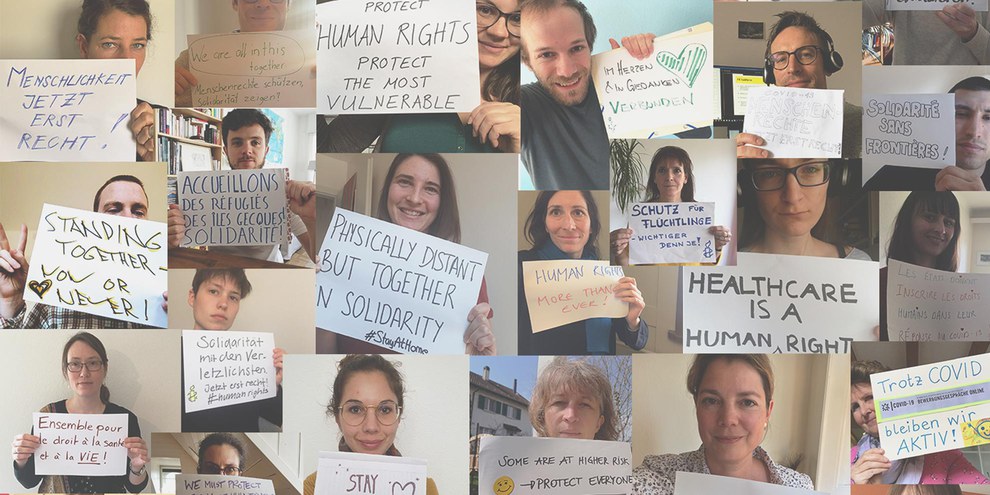 MENSCHLICHKEIT
JETZT
ERST
RECHT!
We are all in this
together
Menschenrechte schützen,
Solidarität zeigen!
PROTECT
HUMAN RIGHTS
PROTECT
THE MOST
VULNERABLE
IM HERZEN
& IN GEDANKEN
VERBUNDEN
JETZT ERST RECHT!
SOLIDARITÉ
SANS
FRONTIÈRES!
STANDING
TOGETHER -
NOW OR
NEVER!
ACCUEILLONS
DES RÉFUGIÉS
DES ÎLES GECQUES!
SOLIDARITÉ!
PHYSICALLY DISTANT
BUT TOGETHER
IN SOLIDARITY
#StayAtHome
HUMAN RIGHTS
MORE THAN
EVER!
SCHUTZ FÜR
FLÜCHTLINGE
- WICHTIGER
DENN JE!
HEALTHCARE
IS A
HUMAN RIGHT
LES ÉTATS DOIVENT
INSCRIRE LES DROITS
HUMAINS DANS LEUR
RÉPONSE AU COVID-19
Solidarität
mit den Ver-
letzlichsten
Jetzt erst recht!
#humanrights
Ensemble pour
le droit à la santé
et à la VIE!
WE MUST PROTECT
STAY
SOME ARE AT HIGHER RISK
→ PROTECT EVERYONE
Trotz COVID
COVID-19 BEWERBUNGSGESPRÄCHE ONLINE
bleiben wir
AKTIV!